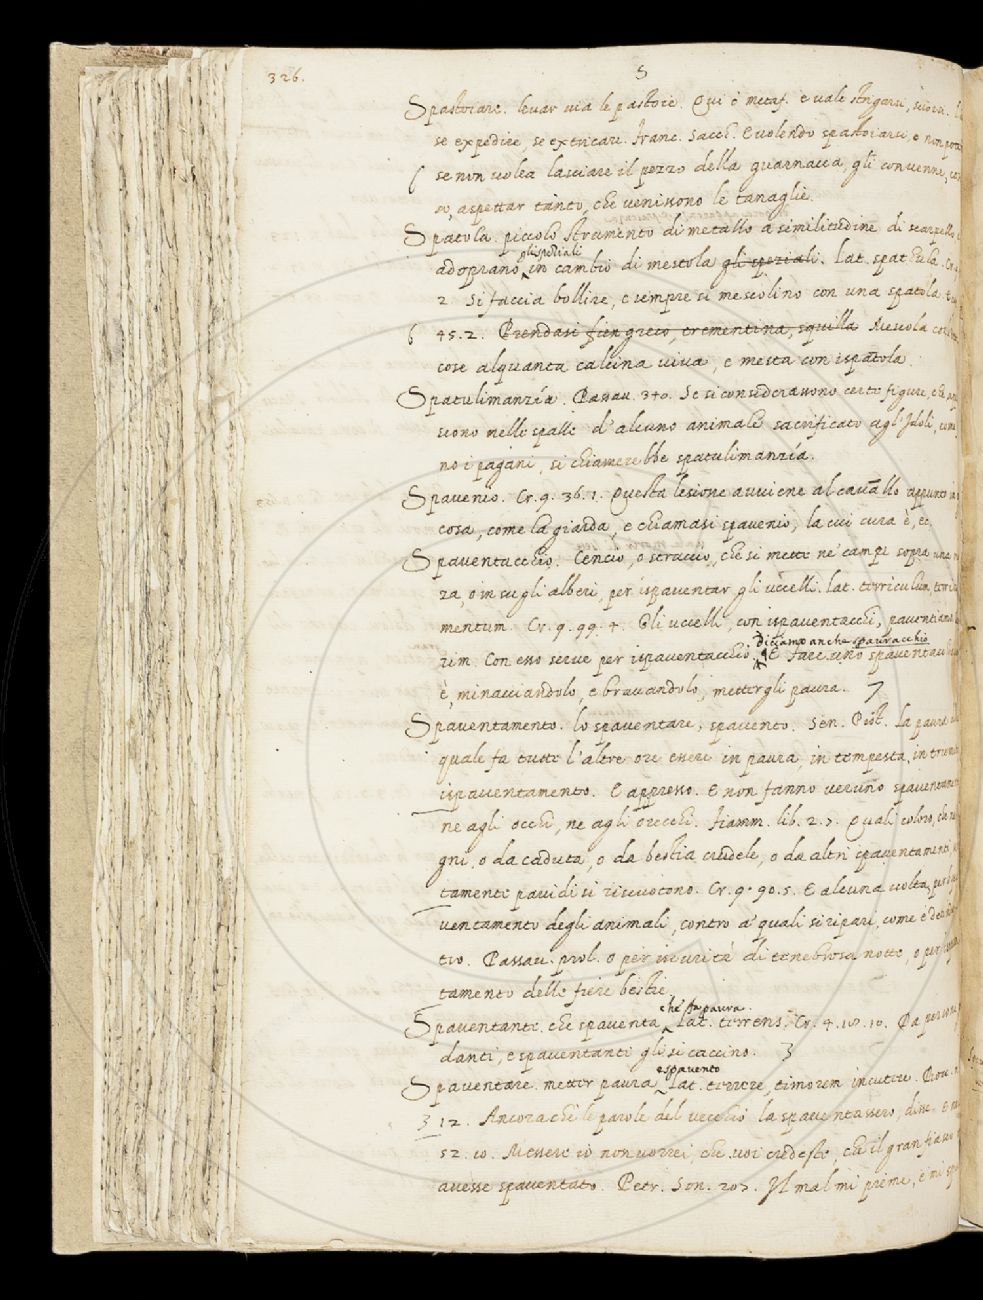 326.
S
Spastoiare. levar via le pastoie. Qui è metaf. e vale
se expedire, se extricare. Franc. Sacch. E volendo spastoiarsi, e non
se non volea lasciare il pezzo della guarnacca, gli convenne,
so, aspettar tanto, che venissono le tanaglie.
Spatola. piccolo strumento di metallo a similitudine di scarpello
gli speziali
adoprano in cambio di mestola gli speziali. Lat. spathula. Cr.
2 Si faccia bollire, e sempre si mescolino con una spatola
6 45.2. Prendasi fien greco, trementina, squilla Mescola con
cose alquanta calcina viva, e mesta con ispatola.
Spatulimanzía. Passav. 340. Se si considerassono certe figure, che
iono nelle spalle d'alcuno animale sacrificato agl'Idoli,
no i pagani, si chiamerebbe spatulimanzía.
Spavenio. Cr. 9. 36. 1. Questa lesione avviene al cavallo appunto
cosa, come la giarda, e chiamasi spavenio, la cui cura è, ec.
Spaventacchio. Cencio, o straccio, che si mette ne' campi sopra una
za, o in su gli alberi, per ispaventar gli uccelli. Lat. terriculum,
mentum. Cr. 9. 99. 4. Gli uccelli, con ispaventacchi,
Diciamo anche spauracchio
rim. Con esso serve per ispaventacchio. E fare uno
è, minacciandolo, e bravandolo, mettergli paura. 7
Spaventamento. lo spaventare, spavento. Sen. Pist. La paura
quale fa tutte l'altre ore essere in paura, in tempesta, in
ispaventamento. E appresso. E non fanno veruno
ne agli occhi, ne agli orecchi. Fiamm. lib. 2. 7. Quali coloro, che
gni, o da caduta, o da bestia crudele, o da altri ispaventamenti,
tamente pavidi si riscuotono. Cr. 9. 90. 5. E alcuna volta,
ventamento degli animali, contro a' quali si ripari, come è
tro. Passav. prol. o per iscurità di tenebrosa notte, o per
tamento delle fiere bestie.
che fa paura.
Spaventante. che spaventa, Lat. terrens. Cr. 4. 18. 10. Da
danti, e spaventanti gli si caccino. 3
e spavento
Spaventare. metter paura, Lat. terrere, timorem incutere. Bocc.
3 12. Ancora che le parole del vecchio la spaventassero, disse.
52. 10. Messere io non vorrei, che voi credeste, che il gran fiasco
avesse spaventato. Petr. Son. 207. Il mal mi preme, e mi